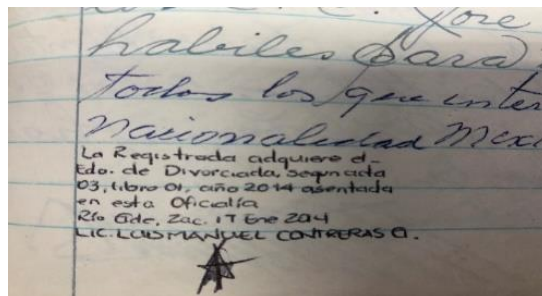 José
habiles para
todos los que inter
nacionalidad Mexi
La Registrada adquiere el
Edo. de Divorciada, segun acta
03, libro 01, año 2014 asentada
en esta Oficialía
Río Gde, Zac. 17 Ene 2014
LIC. LUIS MANUEL CONTRERAS G.